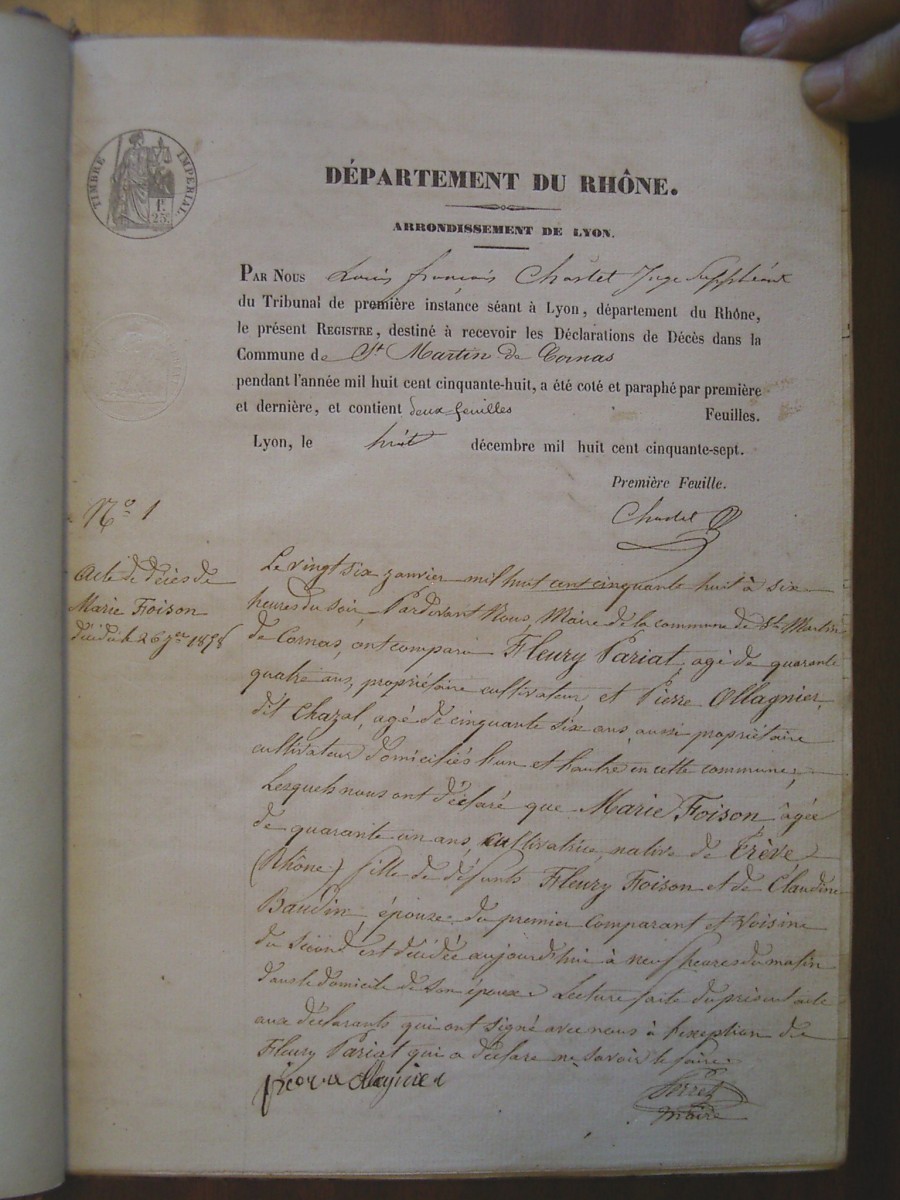 TIMBRE IMPÉRIAL.
f.
25.c
DÉPARTEMENT DU RHÔNE.
ARRONDISSEMENT DE LYON.
PAR NOUS Louis françois Chastel Juge Suppléant
du Tribunal de première instance séant à Lyon, département du Rhône,
le présent REGISTRE, destiné à recevoir les Déclarations de Décès dans la
Commune de St Martin de Cornas
pendant l'année mil huit cent cinquante-huit, a été coté et paraphé par première
et dernière, et contient deux feuilles Feuilles.
Lyon, le huit décembre mil huit cent cinquante-sept.
Première Feuille.
Chastel
No 1
Acte de décès de
Marie Foison
décédé le 26 jer 1858
Le vingt six janvier mil huit cent cinquante huit à six
heures du soir, Pardevant Nous, Maire de la commune de St Martin
de Cornas, ont comparu Fleury Pariat, agé de quarante
quatre ans, propriétaire cultivateur, et Pierre Ollagnier,
dit Chazal, agé de cinquante six ans, aussi propriétaire
cultivateur domiciliés l'un et l'autre en cette commune;
Lesquels nous ont déclaré que Marie Foison, âgée
de quarante un ans, cultivatrice, native de Trève
(Rhône) fille de défunts Fleury Foison et de Claudine
Baudin, épouze du premier comparant et Voisine
du second, est décédée aujourd'hui à neuf heures du matin
dans le domicile de son époux. Lecture faite du présent acte
aux déclarants qui ont signé avec nous à l'exception de
Fleury Pariat qui a déclaré ne savoir le faire.
maire